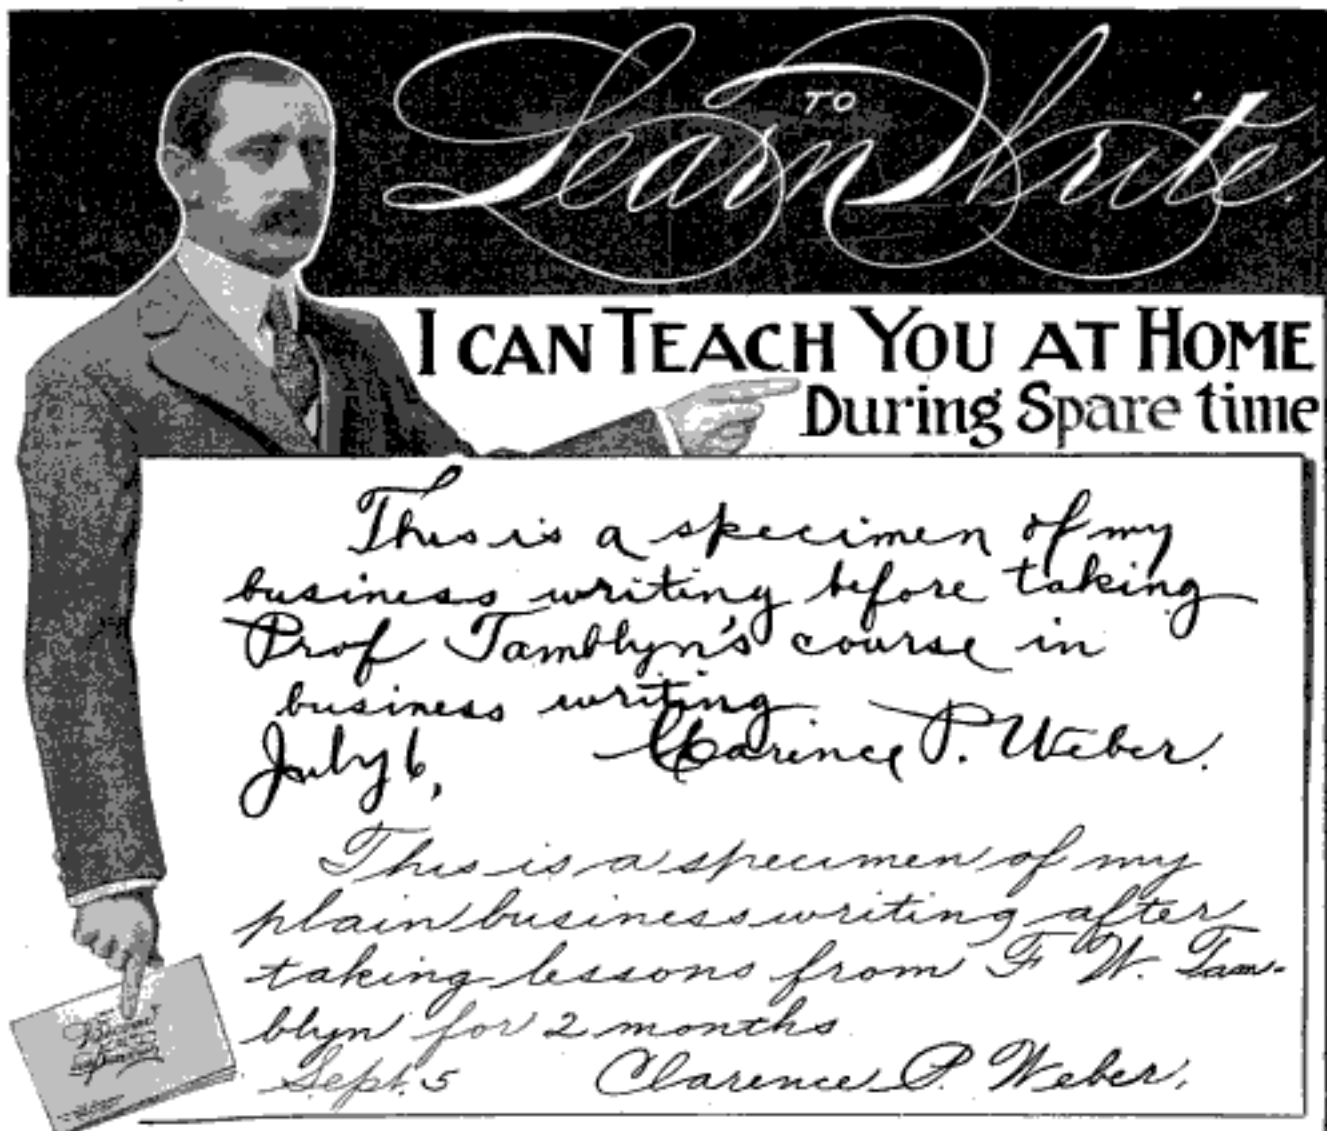 Learn to Write
I CAN TEACH YOU AT HOME
During Spare time
This is a specimen of my
business writing before taking
Prof Tamblyn's course in
business writing
July 6, Clarence P. Weber.
This is a specimen of my
plain business writing after
taking lessons from F. W. Tam-
blyn for 2 months
Sept. 5 Clarence P. Weber.